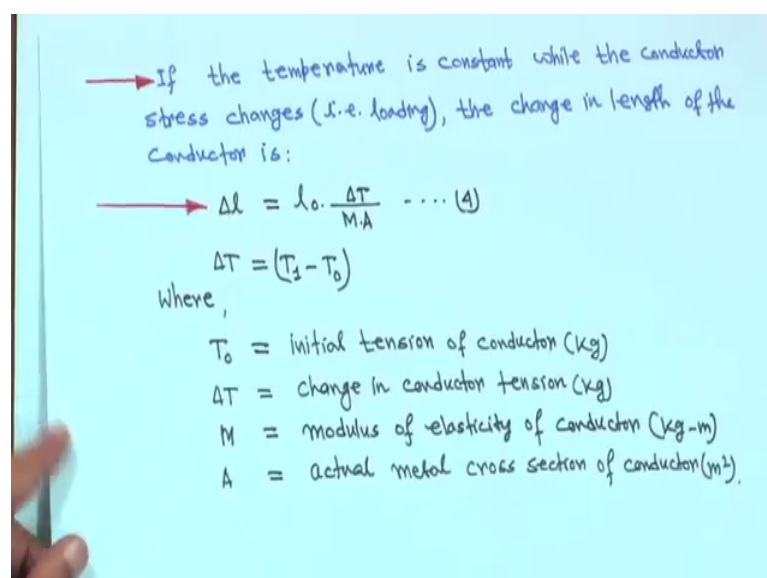 If the temperature is constant while the conductor
stress changes (i.e. loading), the change in length of the
conductor is:
Δl = l₀. ΔT/M.A ---- (4)
ΔT = (T₁ - T₀)
Where,
T₀ = initial tension of conductor (kg)
ΔT = change in conductor tension (kg)
M = modulus of elasticity of conductor (kg-m)
A = actual metal cross section of conductor (m²).